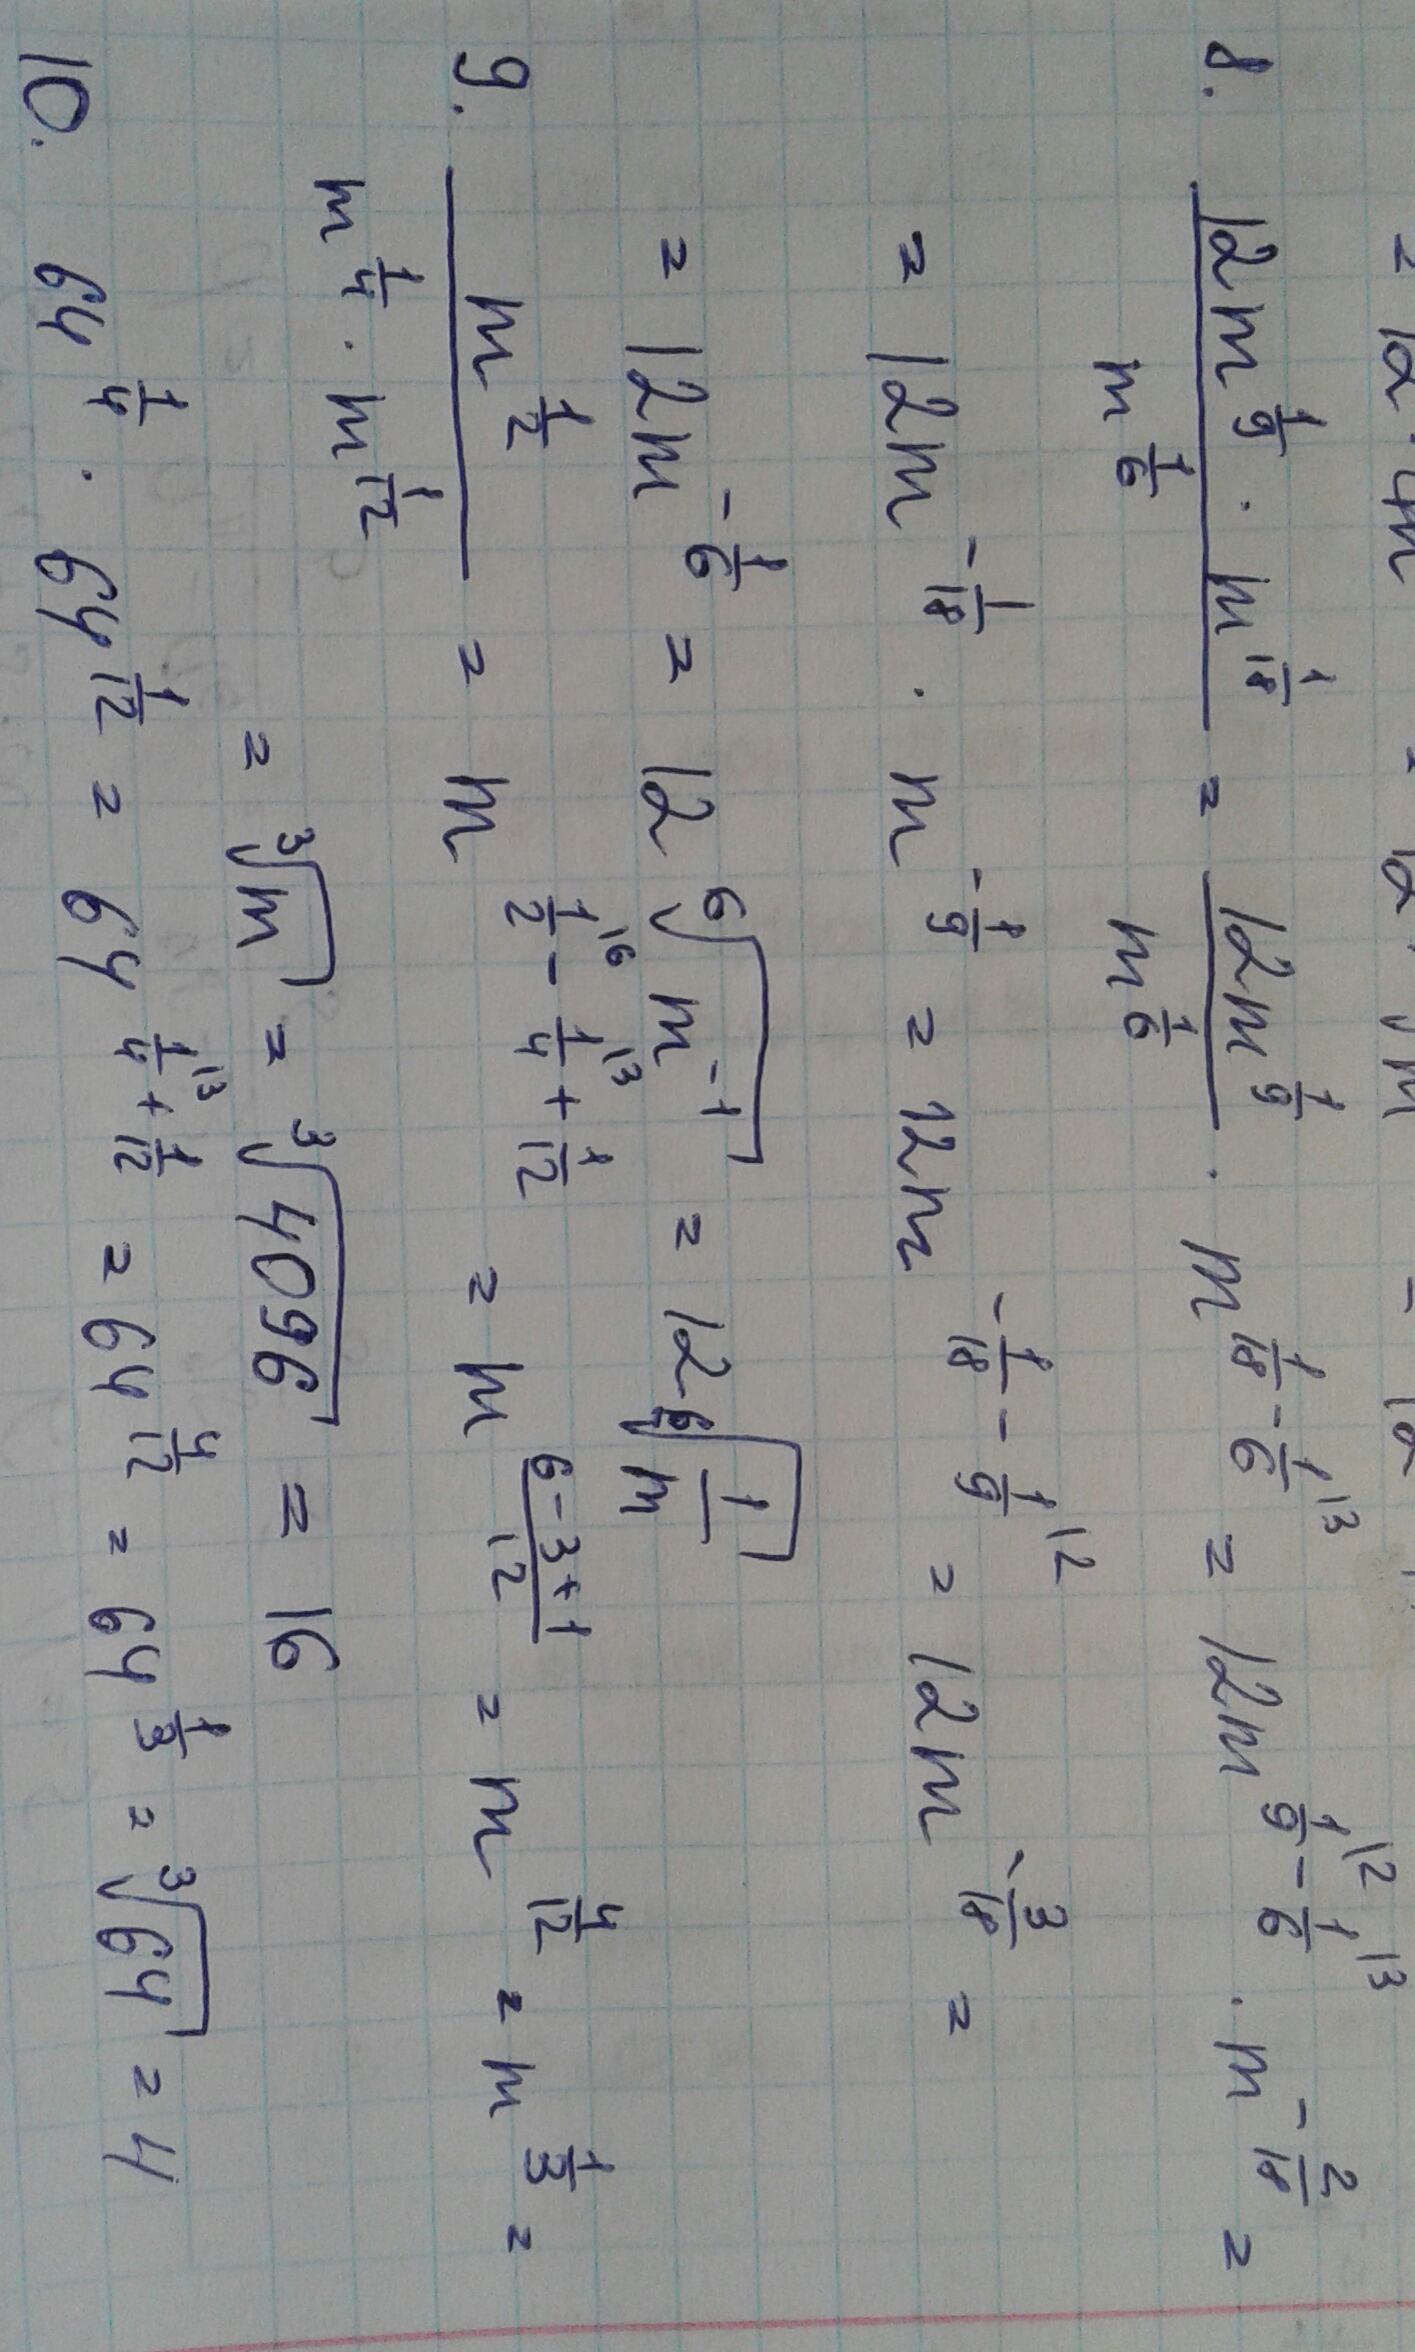 = 12 · m = 12 · √m = 12
8. (12m^(1/9) · m^(1/18)) / m^(1/6) = 12m^(1/9) / m^(1/6) · m^(1/18 - 1/6 |3) = 12m^(1/9 |2 - 1/6 |3) · m^(-2/18) =
= 12m^(-1/18) · m^(-1/9) = 12m^(-1/18 - 1/9 |2) = 12m^(-3/18) =
= 12m^(-1/6) = 12 ⁶√(m^(-1)) = 12 ⁶√(1/m)
9. m^(1/2) / (m^(1/4) · m^(1/12)) = m^(1/2 |6 - 1/4 |3 + 1/12) = m^((6-3+1)/12) = m^(4/12) = m^(1/3) =
= ³√m = ³√4096 = 16
10. 64^(1/4) · 64^(1/12) = 64^(1/4 |3 + 1/12) = 64^(4/12) = 64^(1/3) = ³√64 = 4